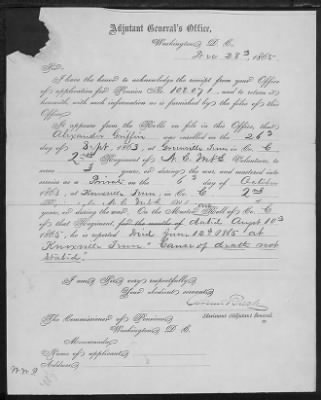 Adjutant General's Office,
Washington, D. C.
Dec 28th, 1865
Sir:
I have the honor to acknowledge the receipt from your Office
of application for Pension No. 108071, and to return it
herewith, with such information as is furnished by the files of this
Office.
It appears from the Rolls on file in this Office, that
Alexander Griffin was enrolled on the 26th
day of Sept, 1863, at Greenville Tenn in Co. E,
2nd Regiment of N. C. Mtd Volunteers, to
serve 3 years, or during the war, and mustered
into service as a Private on the day of October
1863, at Knoxville Tenn, in Co. E 2nd
N. C. Mtd Vols, to
years, or during the war. On the Muster out Roll of Co. E
of that Regiment, dated Augst 16th
1865, he is reported Died June 12th 1865 at
Knoxville Tenn "Cause of death not
stated."
I am, Sir, very respectfully,
Your obedient servant,
Assistant Adjutant General.
The Commissioner of Pensions,
Washington, D. C.
Memoranda:
Name of applicant,
Address,